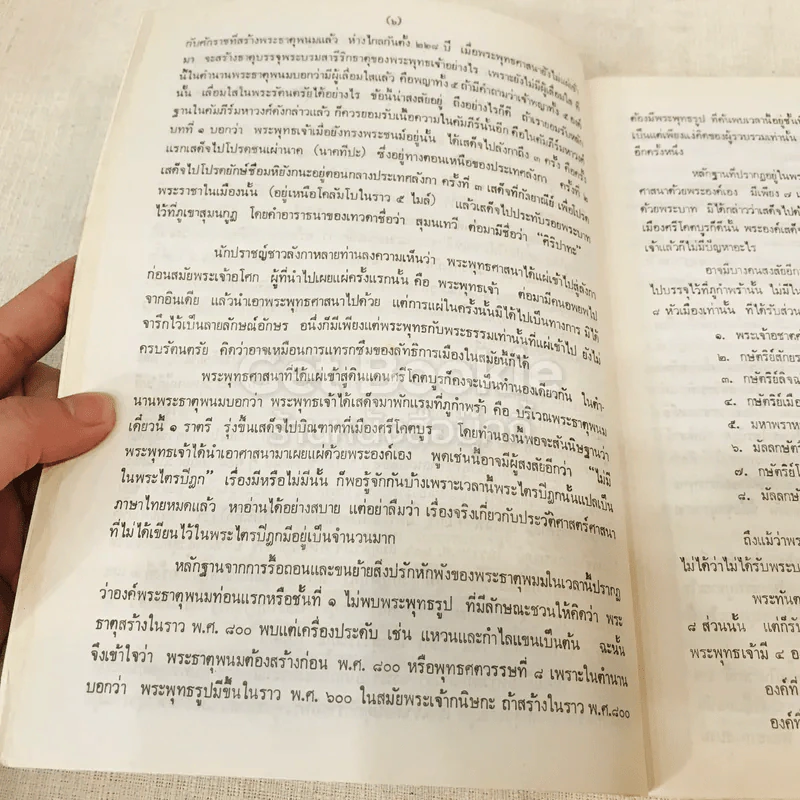 (๖)
กับศักราชที่สร้างพระธาตุพนมแล้ว ห่างไกลกันตั้ง ๒๒๘ ปี เมื่อพระพุทธศาสนายังไม่แผ่เข้า
มา จะสร้างธาตุบรรจุพระบรมสารีริกธาตุของพระพุทธเจ้าอย่างไร เพราะยังไม่มีผู้เลื่อมใส
นี้ในตำนานพระธาตุพนมบอกว่ามีผู้เลื่อมใสแล้ว คือพญาทั้ง ๕ ถ้ามีคำถามว่าเจ้าพญาทั้ง ๕ องค์
นั้น เลื่อมใสในพระรัตนตรัยได้อย่างไร ข้อนี้น่าสงสัยอยู่ ถึงอย่างไรก็ดี ถ้าเรายอมรับหลัก
ฐานในคัมภีร์มหาวงศ์ดังกล่าวแล้ว ก็ควรยอมรับเนื้อความในคัมภีร์นั้นอีก คือในคัมภีร์มหาวงศ์
บทที่ ๑ บอกว่า พระพุทธเจ้าเมื่อยังทรงพระชนม์อยู่นั้น ได้เสด็จไปลังกาถึง ๓ ครั้ง คือครั้ง
แรกเสด็จไปโปรดชนเผ่านาค (นาคทีปะ) ซึ่งอยู่ทางตอนเหนือของประเทศลังกา ครั้งที่ ๒
เสด็จไปโปรดยักษ์ชื่อมหิยังกนะอยู่ตอนกลางประเทศลังกา ครั้งที่ ๓ เสด็จที่กัลยาณีย์ เพื่อโปรด
พระราชาในเมืองนั้น (อยู่เหนือโคลัมโบในราว ๕ ไมล์) แล้วเสด็จไปประทับรอยพระบาท
ไว้ที่ภูเขาสุมนกูฏ โดยคำอาราธนาของเทวดาชื่อว่า สุมนเทวี ต่อมามีชื่อว่า “ศิริปาทะ”
นักปราชญ์ชาวลังกาหลายท่านลงความเห็นว่า พระพุทธศาสนาได้แผ่เข้าไปสู่ลังกา
ก่อนสมัยพระเจ้าอโศก ผู้ที่นำไปเผยแผ่ครั้งแรกนั้น คือ พระพุทธเจ้า ต่อมามีคนอพยพไป
จากอินเดีย แล้วนำเอาพระพุทธศาสนาไปด้วย แต่การแผ่ในครั้งนั้นมิได้ไปเป็นทางการ มิได้
จารึกไว้เป็นลายลักษณ์อักษร อนึ่งก็มีเพียงแต่พระพุทธกับพระธรรมเท่านั้นที่แผ่เข้าไป ยังไม่
ครบรัตนตรัย คิดว่าอาจเหมือนการแทรกซึมของลัทธิการเมืองในสมัยนี้ก็ได้
พระพุทธศาสนาที่ได้แผ่เข้าสู่ดินแดนศรีโคตบูรก็คงจะเป็นทำนองเดียวกัน ในตำ-
นานพระธาตุพนมบอกว่า พระพุทธเจ้าได้เสด็จมาพักแรมที่ภูกำพร้า คือ บริเวณพระธาตุพนม
เดี๋ยวนี้ ๑ ราตรี รุ่งขึ้นเสด็จไปบิณฑาตที่เมืองศรีโคตบูร โดยทำนองนี้พอจะสันนิษฐานว่า
พระพุทธเจ้าได้นำเอาศาสนามาเผยแผ่ด้วยพระองค์เอง พูดเช่นนี้อาจมีผู้สงสัยอีกว่า “ไม่มี
ในพระไตรปิฎก” เรื่องมีหรือไม่มีนั้น ก็พอรู้จักกันบ้างเพราะเวลานี้พระไตรปิฎกนั้นแปลเป็น
ภาษาไทยหมดแล้ว หาอ่านได้อย่างสบาย แต่อย่าลืมว่า เรื่องจริงเกี่ยวกับประวัติศาสตร์ศาสนา
ที่ไม่ได้เขียนไว้ในพระไตรปิฎกมีอยู่เป็นจำนวนมาก
หลักฐานจากการรื้อถอนและขนย้ายสิ่งปรักหักพังของพระธาตุพมมในเวลานี้ปรากฏ
ว่าองค์พระธาตุพนมท่อนแรกหรือชั้นที่ ๑ ไม่พบพระพุทธรูป ที่มีลักษณะชวนให้คิดว่า พระ
ธาตุสร้างในราว พ.ศ. ๘๐๐ พบแต่เครื่องประดับ เช่น แหวนและกำไลแขนเป็นต้น ฉะนั้น
จึงเข้าใจว่า พระธาตุพนมต้องสร้างก่อน พ.ศ. ๘๐๐ หรือพุทธศตวรรษที่ ๘ เพราะในตำนาน
บอกว่า พระพุทธรูปมีขึ้นในราว พ.ศ. ๖๐๐ ในสมัยพระเจ้ากนิษกะ ถ้าสร้างในราว พ.ศ.๘๐๐
ต้องมีพระพุทธรูป ที่ค้นพบเวลานี้อยู่ชั้นที่
เป็นแต่เพียงแง่คิดของผู้รวบรวมเท่านั้น
อีกครั้งหนึ่ง
หลักฐานที่ปรากฏอยู่ในพระ
ศาสนาด้วยพระองค์เอง มีเพียง ๗
ด้วยพระบาท มิได้กล่าวว่าเสด็จไป
เมืองศรีโคตบูรก็ดีนั้น พระองค์เสด็จ
เจ้าแล้วก็ไม่มีปัญหาอะไร
อาจมีบางคนสงสัยอีก
ไปบรรจุไว้ที่ภูกำพร้านั้น ไม่มีใน
๘ หัวเมืองเท่านั้น ที่ได้รับส่วน
๑. พระเจ้าอชาต
๒. กษัตริย์สักยร
๓. กษัตริย์ลิจฉ
๔. กษัตริย์เมือ
๕. มหาพราห
๖. มัลลกษัตริ
๗. กษัตริย์โ
๘. มัลลกษัต
ถึงแม้ว่าพระ
ไม่ได้ว่าไม่ได้รับพระบ
พระทันต
๘ ส่วนนั้น แต่ก็รับ
พระพุทธเจ้ามี ๔ อ
องค์ที่
องค์ที่